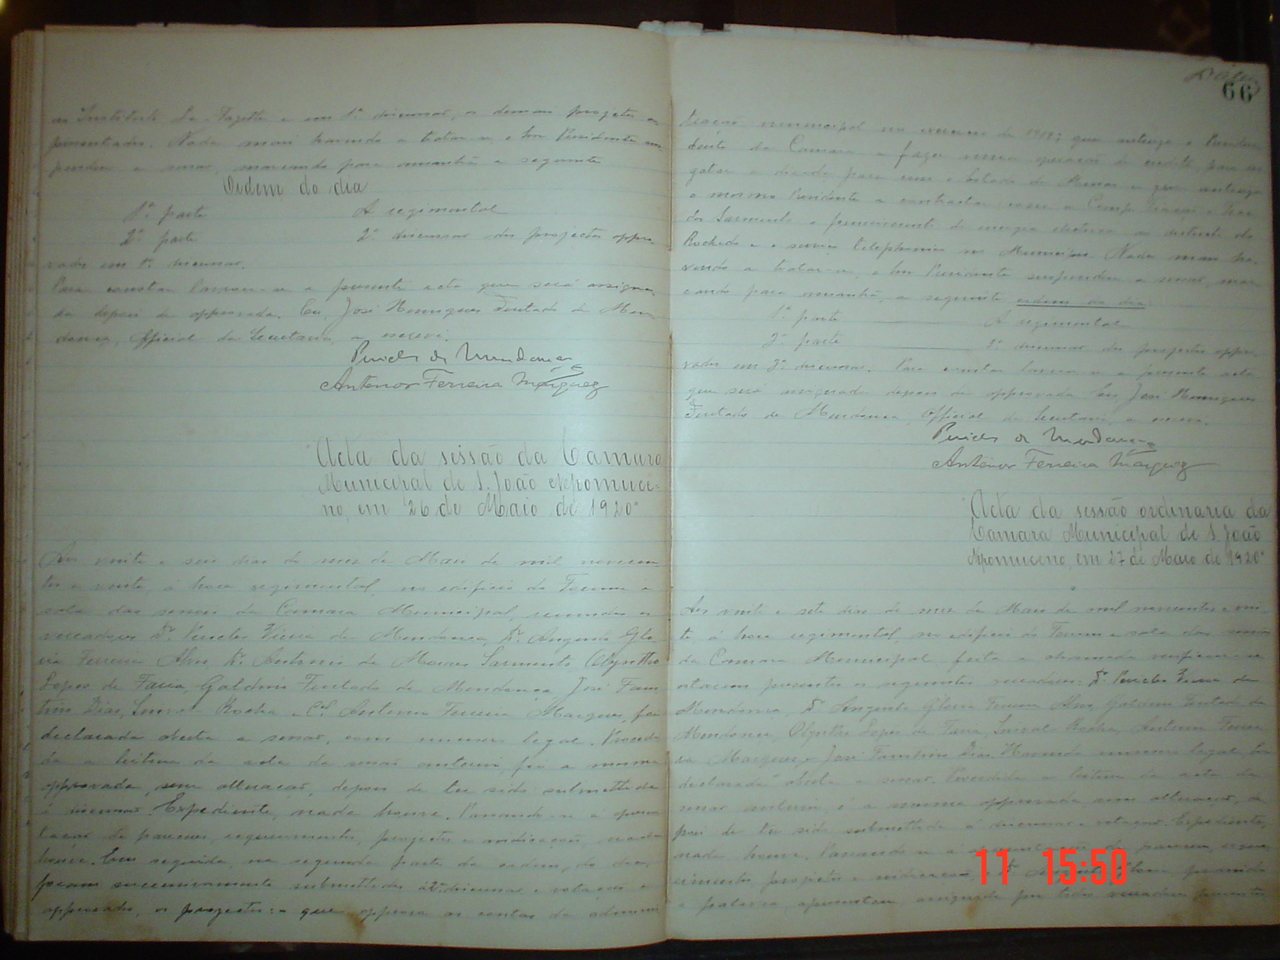 ao Instituto La-Fayette e em 1ª discussão, os demais projectos a-
presentados. Nada mais havendo a tratar-se, o Snr. Presidente sus-
pendeu a sessão, marcando para amanhã a seguinte
Ordem do dia
1ª parte A regimental
2ª parte 2ª discussão dos projectos appro-
vados em 1ª discussão.
Para constar lavrou-se a presente acta que será assigna-
da depois de approvada. Eu, José Henriques Furtado de Men-
donça, Official da Secretaria, a escrevi.
Pericles de Mendonça
Antenor Ferreira Marques
Acta da sessão da Camara
Municipal de S. João Nepomuce-
no, em 26 de Maio de 1920
Aos vinte e seis dias do mez de Maio de mil novecen-
tos e vinte, á hora regimental, no edificio do Forum e
sala das sessões da Camara Municipal, reunidos os
vereadores Dr. Pericles Vieira de Mendonça, Dr. Augusto Glo-
ria Ferreira Alves, Dr. Antonio de Moraes Sarmento, Olyntho
Lopes de Faria, Galdino Furtado de Mendonça, José Faus-
tino Dias, Rocha e Cel. Antenor Ferreira Marques, foi
declarada aberta a sessão, com numero legal. Procedi-
da a leitura da acta da sessão anterior, foi a mesma
approvada, sem alteração, depois de ter sido submettida
á discussão. Expediente, nada houve. Passando-se á apresen-
tação de pareceres, requerimentos, projectos e indicações, nada
houve. Em seguida, na segunda parte da ordem do dia,
foram successivamente submettidos á 2ª discussão e votação e
approvados, os projectos: o que approva as contas da adminis-
66
tração municipal no exercicio de 1919; que autoriza o Presi-
dente da Camara a fazer uma operação de credito, para res-
gatar a divida para com o Estado de Minas e que autoriza
o mesmo Presidente a contractar com a Comp.
dos Sarmento o fornecimento de energia electrica ao districto de
Rochedo e o serviço telephonico no Municipio. Nada mais ha-
vendo a tratar-se, o Snr. Presidente suspendeu a sessão, mar-
cando para amanhã, a seguinte ordem do dia:
1ª parte A regimental
2ª parte 3ª discussão dos projectos appro-
vados em 2ª discussão. Para constar lavrou-se a presente acta
que será assignada depois de approvada. Eu, José Henriques
Furtado de Mendonça, Official da Secretaria, a escrevi.
Pericles de Mendonça
Antenor Ferreira Marques
Acta da sessão ordinaria da
Camara Municipal de S. João
Nepomuceno, em 27 de Maio de 1920
Aos vinte e sete dias do mez de Maio de mil novecentos e vin-
te, á hora regimental, no edificio do Forum e sala das sessões
da Camara Municipal, feita a chamada verificou-se
estarem presentes os seguintes vereadores: Dr. Pericles Vieira de
Mendonça, Dr. Augusto Gloria Ferreira Alves, Galdino Furtado de
Mendonça, Olyntho Lopes de Faria, Rocha, Antenor Ferrei-
ra Marques e José Faustino Dias. Havendo numero legal, foi
declarada aberta a sessão. Procedida a leitura da acta da
sessão anterior, é a mesma approvada sem alteração, de-
pois de ter sido submettida á discussão e votação. Expediente,
nada houve. Passando-se á apresentação de pareceres, reque-
rimentos, projectos e indicações, pedindo
a palavra, apresentou, assignada por todos vereadores presentes
11 15:50